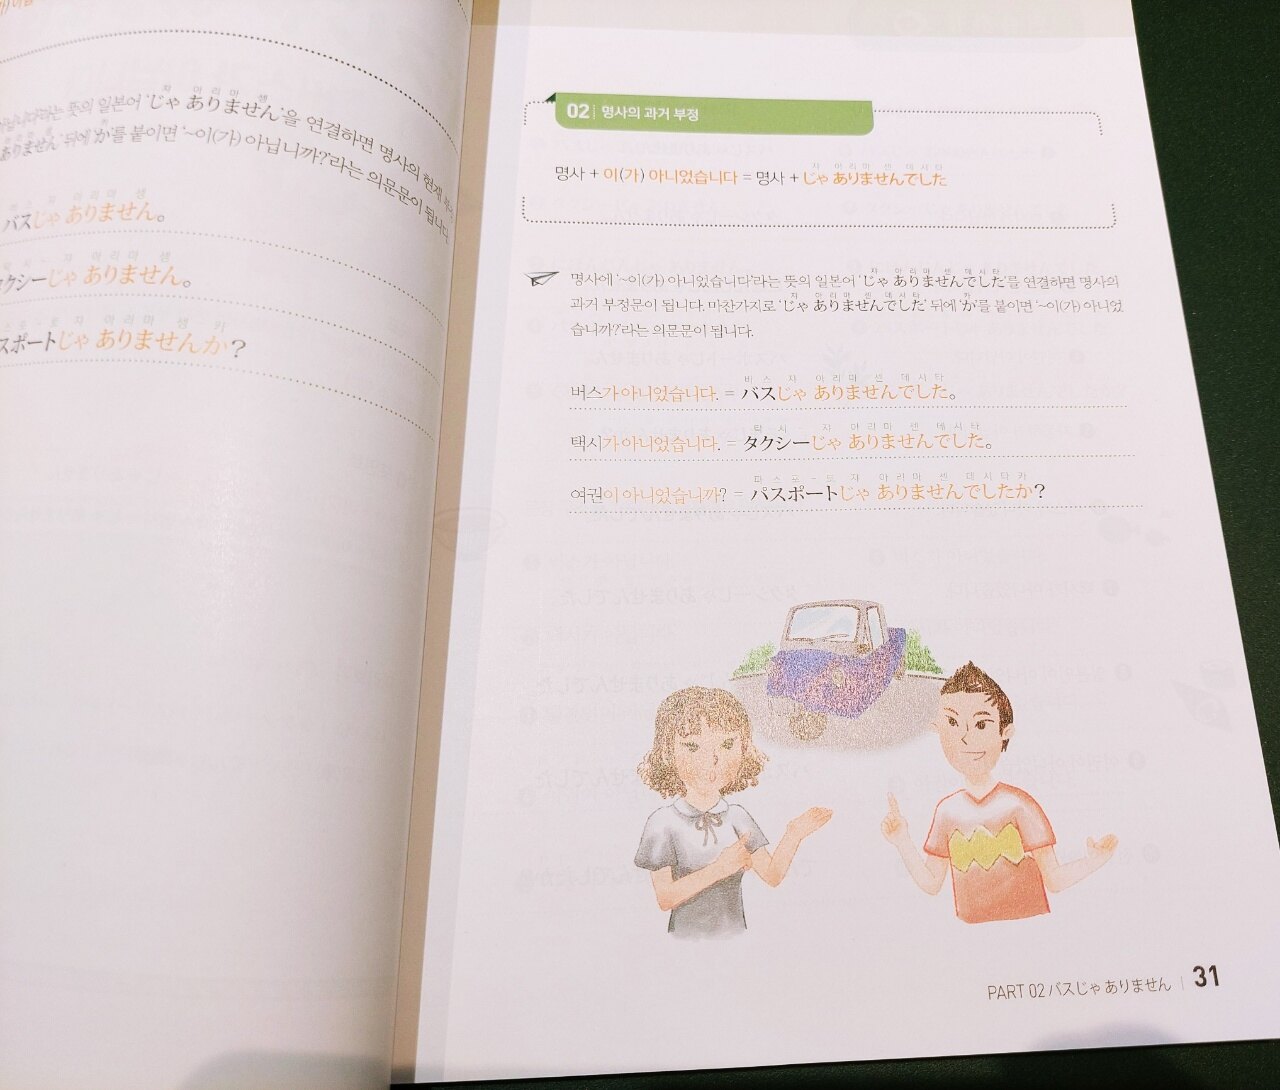 뜻의 일본어 'じゃ ありません'을 연결하면 명사의 현재
쟈 아리마 셍
ありません' 뒤에 'か'를 붙이면 '~이(가) 아닙니까?'라는 의문문이 됩니다.
バスじゃ ありません。
タクシーじゃ ありません。
スポートじゃ ありませんか?
02 명사의 과거 부정
쟈 아리마 센 데시타
명사 + 이(가) 아니었습니다 = 명사 + じゃ ありませんでした
쟈 아리마 센 데시타
명사에 '~이(가) 아니었습니다'라는 뜻의 일본어 'じゃ ありませんでした'를 연결하면 명사의
쟈 아리마 센 데시타 카
과거 부정문이 됩니다. 마찬가지로 'じゃ ありませんでした' 뒤에 'か'를 붙이면 '~이(가) 아니었
습니까?'라는 의문문이 됩니다.
바스 쟈 아리마 센 데시타
버스가 아니었습니다. = バスじゃ ありませんでした。
탁시- 쟈 아리마 센 데시타
택시가 아니었습니다. = タクシーじゃ ありませんでした。
파스포-토 쟈 아리마 센 데시타카
여권이 아니었습니까? = パスポートじゃ ありませんでしたか?
PART 02 バスじゃ ありません | 31